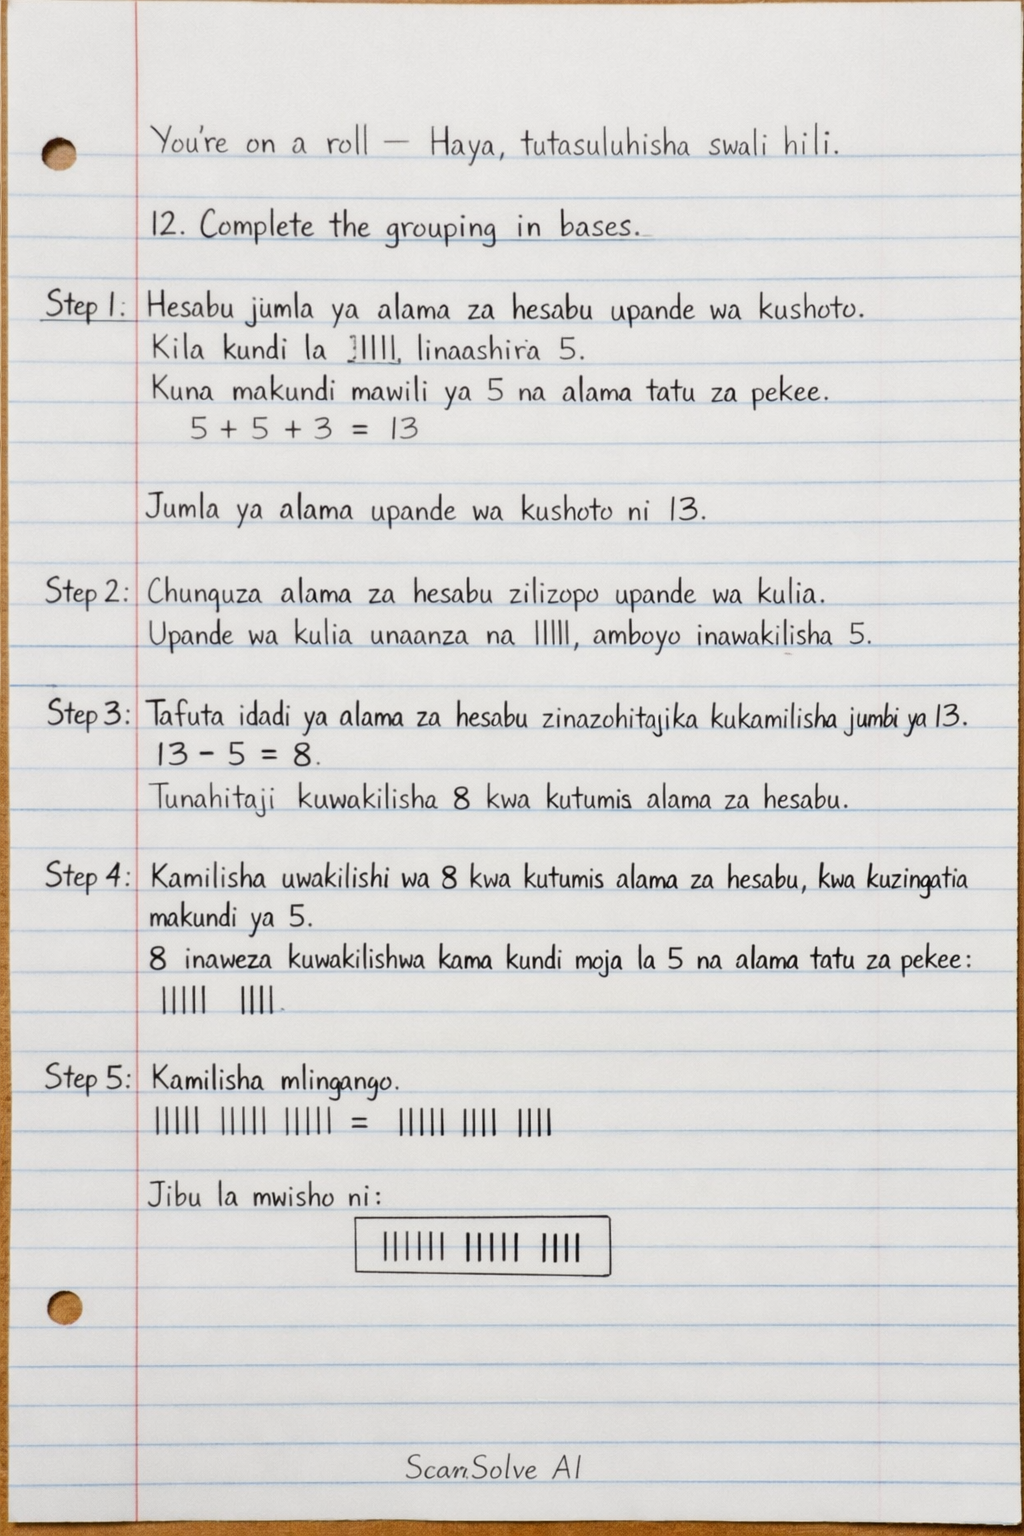 You're on a roll — Haya, tutasuluhisha swali hili.
12. Complete the grouping in bases.
Step 1: Hesabu jumla ya alama za hesabu upande wa kushoto.
Kila kundi la |||||, linaashira 5.
Kuna makundi mawili ya 5 na alama tatu za pekee.
5 + 5 + 3 = 13
Jumla ya alama upande wa kushoto ni 13.
Step 2: Chunguza alama za hesabu zilizopo upande wa kulia.
Upande wa kulia unaanza na |||||, amboyo inawakilisha 5.
Step 3: Tafuta idadi ya alama za hesabu zinazohitajika kukamilisha jumbi ya 13.
13 - 5 = 8.
Tunahitaji kuwakilisha 8 kwa kutumis alama za hesabu.
Step 4: Kamilisha uwakilishi wa 8 kwa kutumis alama za hesabu, kwa kuzingatia
makundi ya 5.
8 inaweza kuwakilishwa kama kundi moja la 5 na alama tatu za pekee:
||||| ||||.
Step 5: Kamilisha mlingango.
||||| ||||| ||||| = ||||| |||| ||||
Jibu la mwisho ni:
|||||| ||||| ||||
ScanSolve AI